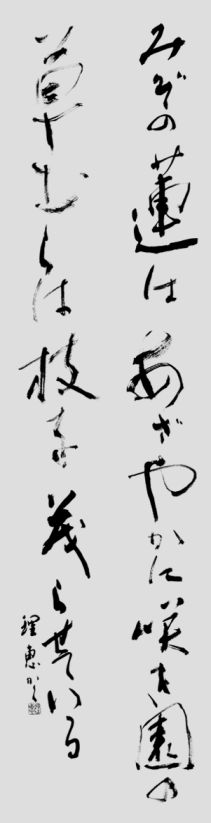 みぞの蓮はあざやかに咲き園の
草むらは枝を茂らせている
理恵かく